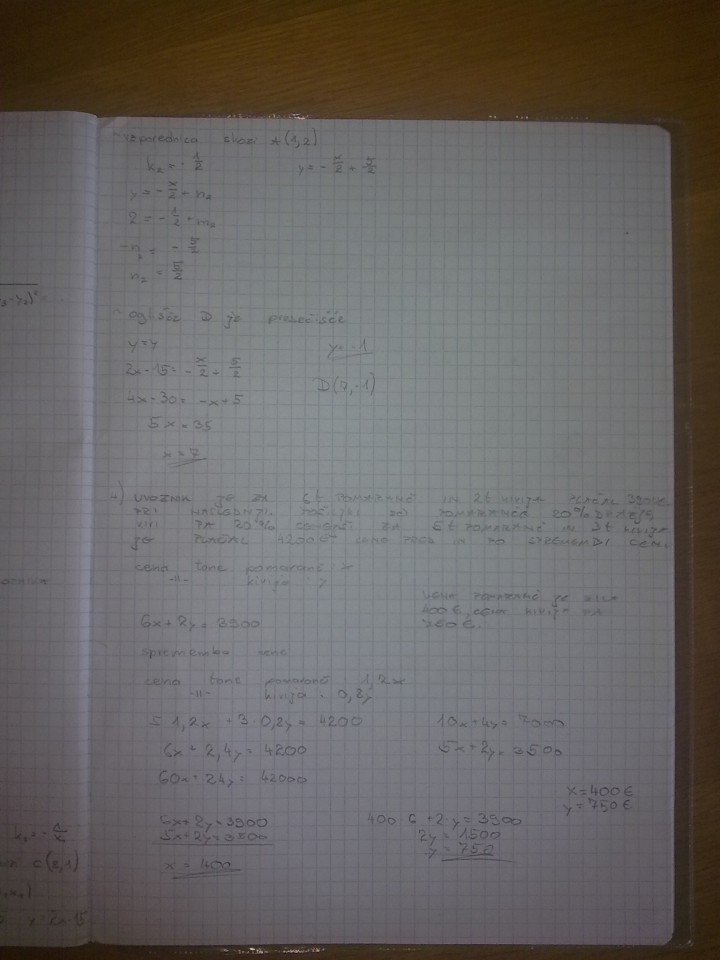 vzporednica skozi A(1,2)
k₂ = - 1/2
y = - x/2 + 5/2
y = - x/2 + n₂
2 = - 1/2 + n₂
-n₂ = - 5/2
n₂ = 5/2
oglišče D je presečišče
y = y
y = -1
2x - 15 = - x/2 + 5/2
D(7,-1)
4x - 30 = -x + 5
5x = 35
x = 7
4) UVOZNIK JE ZA 6t POMARANČ IN 2t KIVIJA PLAČAL 3900€
PRI NASLEDNJI POŠILJKI SO POMARANČE 20% DRAŽJE,
KIVI PA 20% CENEJŠI ZA 5t POMARANČ IN 3t KIVIJA
JE PLAČAL 4200€ CENA PRED IN PO SPREMEMBI CEN.
cena tone pomaranč x
-11- kivija : y
CENA POMARANČ JE BILA
400€, CENA KIVIJA PA
750€.
6x + 2y = 3900
sprememba cene
cena tone pomaranč : 1,2x
-11- kivija : 0,2y
5 · 1,2x + 3 · 0,2y = 4200
10x + 4y = 7000
6x + 2,4y = 4200
5x + 2y = 3500
60x + 24y = 42000
x = 400€
y = 750€
6x + 2y = 3900
400 · 6 + 2 · y = 3900
5x + 2y = 3500
2y = 1500
x = 400
y = 750
C(8,1)
y = 2x - 15